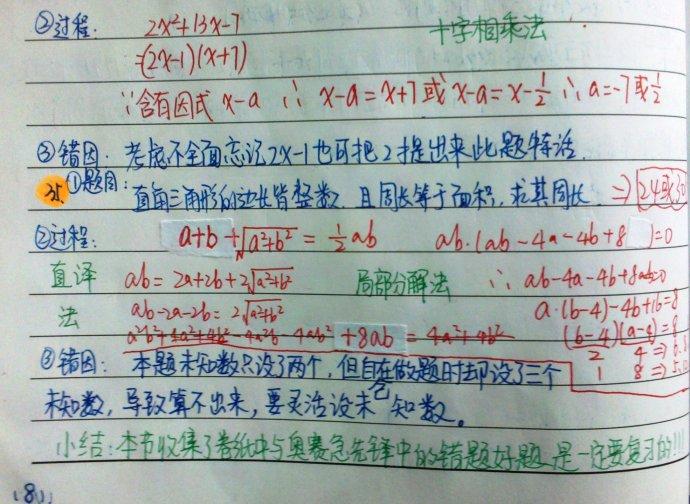 ②过程: 2x²+13x-7 十字相乘法
=(2x-1)(x+7)
∵含有因式 x-a ∴ x-a=x+7或x-a=x-½ ∴a=-7或½
③错因: 考虑不全面忘记2x-1也可把2才提出来此题特活.
①题目: 直角三角形的边长皆整数 且周长等于面积,求其周长 ⇒ 24或30
②过程: a+b+√a²+b² = ½ab ab·(ab-4a-4b+8)=0
直译 ab=2a+2b+2√a²+b² 局部分解法 ∴ab-4a-4b+8=0
法 ab-2a-2b=2√a²+b² a·(b-4)-4b+16=8
a²b²+4a²+4b²-4a²b-4ab²+8ab=4a²+4b² (b-4)(a-4)=8
2 4 ⇒ 6.8
1 8 ⇒ 5.12
③错因: 本题未知数只设了两个,但自在做题时却设了三个
未知数,导致算不出来,要灵活设未知数。
小结:本节收集了卷纸中与奥赛急先锋中的错题好题 是一定要复习的!!!
(8)